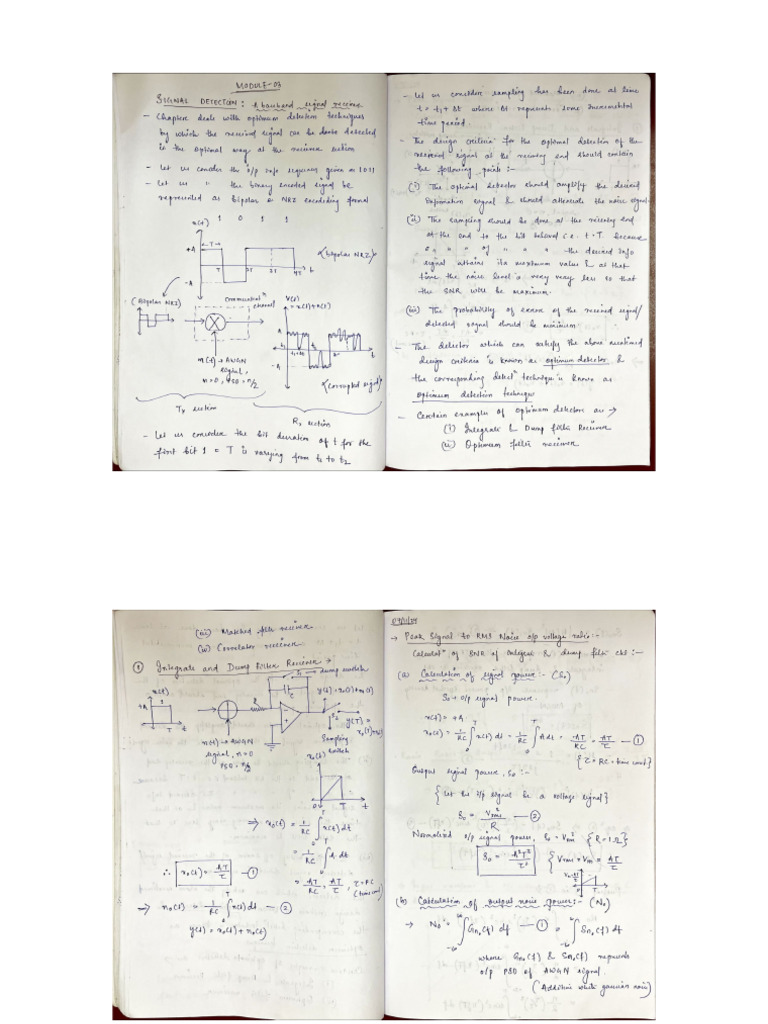 MODULE-03
SIGNAL DETECTION: & baseband signal receiver
- Chapter deals with optimum detection techniques
by which the received signal can be detected
in the optimal way at the receiver section
- Let us consider the i/p info sequence given as 1011
- Let us " the binary encoded signal be
represented as bipolar NRZ encoding format
x(t) 1 0 1 1
+A
← T →
T 2T 3T 4T t
-A
(bipolar NRZ)
(Bipolar NRZ)
channel
V(t)
= x(t)+n(t)
A
t1 t1+Δt t
-A
n(t) → AWGN
signal,
n=0, PSD = η/2
(corrupted signal)
Tx section
Rx section
- Let us consider the bit duration of t for the
first bit 1 = T is varying from t1 to t2
- Let us consider sampling has been done at time
t = t1 + Δt where Δt represents some incremental
time period.
- The design criteria for the optimal detection of the
received signal at the receiving end should contain
the following points :-
(i) The optimal detector should amplify the desired
information signal & should attenuate the noise signal
(ii) The sampling should be done at the receiving end
at the end to the bit interval i.e. t = T because
" " of " " " the desired info
signal attains its maximum value & at that
time the noise level is very very less so that
the SNR will be maximum.
(iii) The probability of error of the received signal/
detected signal should be minimum.
- The detector which can satisfy the above mentioned
design criteria is known as optimum detector &
the corresponding detecn technique is known as
optimum detection technique
- Certain examples of optimum detectors are →
(i) Integrate & Dump filter Receiver
(ii) Optimum filter receiver
(iii) Matched filter receiver
(iv) Correlator receiver
① Integrate and Dump Filter Receiver →
S1 → dump switch
x(t)
+A
1
T t
R
C
y(t) = x0(t)+n0(t)
S2
y(T) =
Sampling
switch
n(t) → AWGN
signal, n=0
PSD = η/2
x0(t)
0 T t
⇒ x0(t) = 1/RC ∫0^T x(t) dt
= 1/RC ∫0^T A dt
= AT/RC = AT/τ, τ = RC
(time const)
∴ x0(t) = AT/τ —①
⇒ n0(t) = 1/RC ∫0^T n(t) dt —②
y(t) = x0(t) + n0(t)
→ Peak Signal to RMS Noise o/p voltage ratio :-
Calculatn of SNR of integral & dump filter ckt :-
(a) Calculation of signal power :- (S0)
S0 → o/p signal power.
x(t) = +A
x0(t) = 1/RC ∫0^T x(t) dt = 1/RC ∫0^T A dt = AT/RC = AT/τ —①
{τ = RC = time const}
Output signal power, S0 :-
{Let the i/p signal be a voltage signal}
S0 = Vrms²/R —②
Normalized o/p signal power, S0 = Vrms² {R = 1Ω}
S0 = A²T²/τ²
{Vrms = Vm = AT/τ
Vm = AT/τ
T
(b) Calculation of output noise power :- (N0)
→ N0 = ∫-∞^∞ Gn0(f) df —① = ∫-∞^∞ Sn0(f) df
where Gn0(f) & Sn0(f) represents
o/p PSD of AWGN signal.
(Additive white gaussian noise)